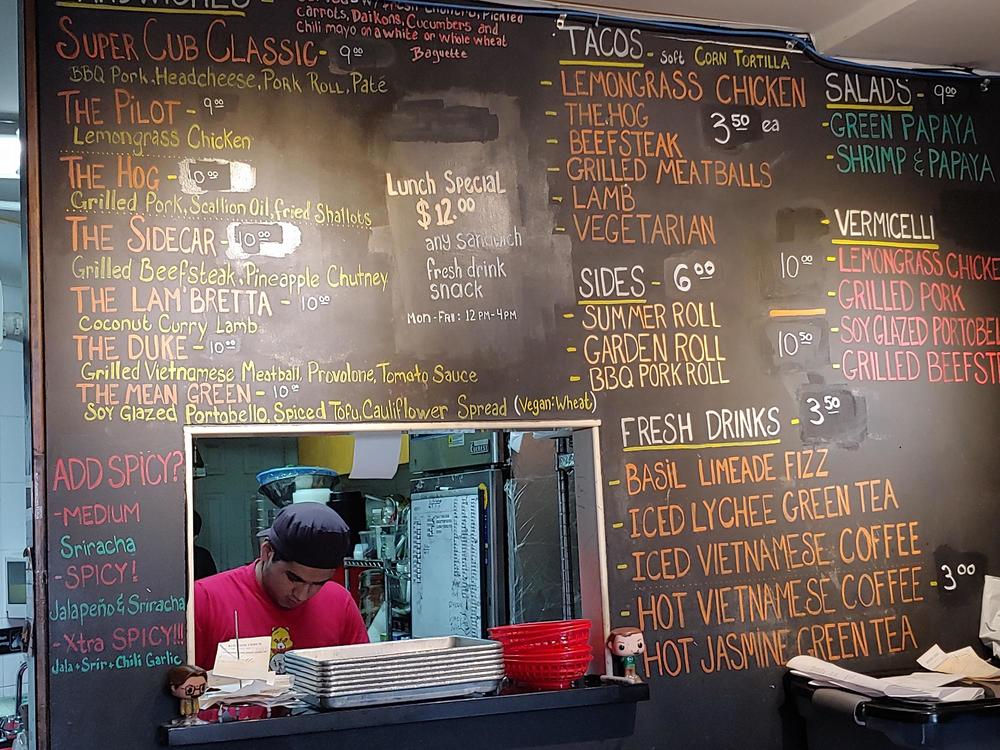 SANDWICHES -
carrots, Daikons, Cucumbers and
Chili mayo on a white or whole wheat
Baguette
SUPER CUB CLASSIC - 9⁰⁰
BBQ Pork, Headcheese, Pork Roll, Paté
THE PILOT - 9⁰⁰
Lemongrass Chicken
THE HOG - 10⁰⁰
Grilled Pork, Scallion Oil, fried Shallots
THE SIDECAR - 10⁰⁰
Grilled Beefsteak, Pineapple Chutney
THE LAM'BRETTA - 10⁰⁰
Coconut Curry Lamb
THE DUKE - 10⁰⁰
Grilled Vietnamese Meatball, Provolone, Tomato Sauce
THE MEAN GREEN - 10⁰⁰
Soy Glazed Portobello, Spiced Tofu, Cauliflower Spread (Vegan: Wheat)
Lunch Special
$12.00
any sandwich
fresh drink
snack
Mon - Fri: 12 PM-4PM
ADD SPICY?
- MEDIUM
Sriracha
- SPICY!
Jalapeño & Sriracha
- Xtra SPICY!!!
Jala + Srir + Chili Garlic
TACOS - Soft CORN TORTILLA
- LEMONGRASS CHICKEN
- THE HOG
- BEEFSTEAK
- GRILLED MEATBALLS
- LAMB
- VEGETARIAN
3⁵⁰ ea
SIDES - 6⁰⁰
- SUMMER ROLL
- GARDEN ROLL
- BBQ PORK ROLL
FRESH DRINKS - 3⁵⁰
- BASIL LIMEADE FIZZ
- ICED LYCHEE GREEN TEA
- ICED VIETNAMESE COFFEE
- HOT VIETNAMESE COFFEE - 3⁰⁰
- HOT JASMINE GREEN TEA
SALADS - 9⁰⁰
- GREEN PAPAYA
- SHRIMP & PAPAYA
VERMICELLI
10⁰⁰ - LEMONGRASS CHICKE
- GRILLED PORK
10⁵⁰ - SOY GLAZED PORTOBEL
- GRILLED BEEFST